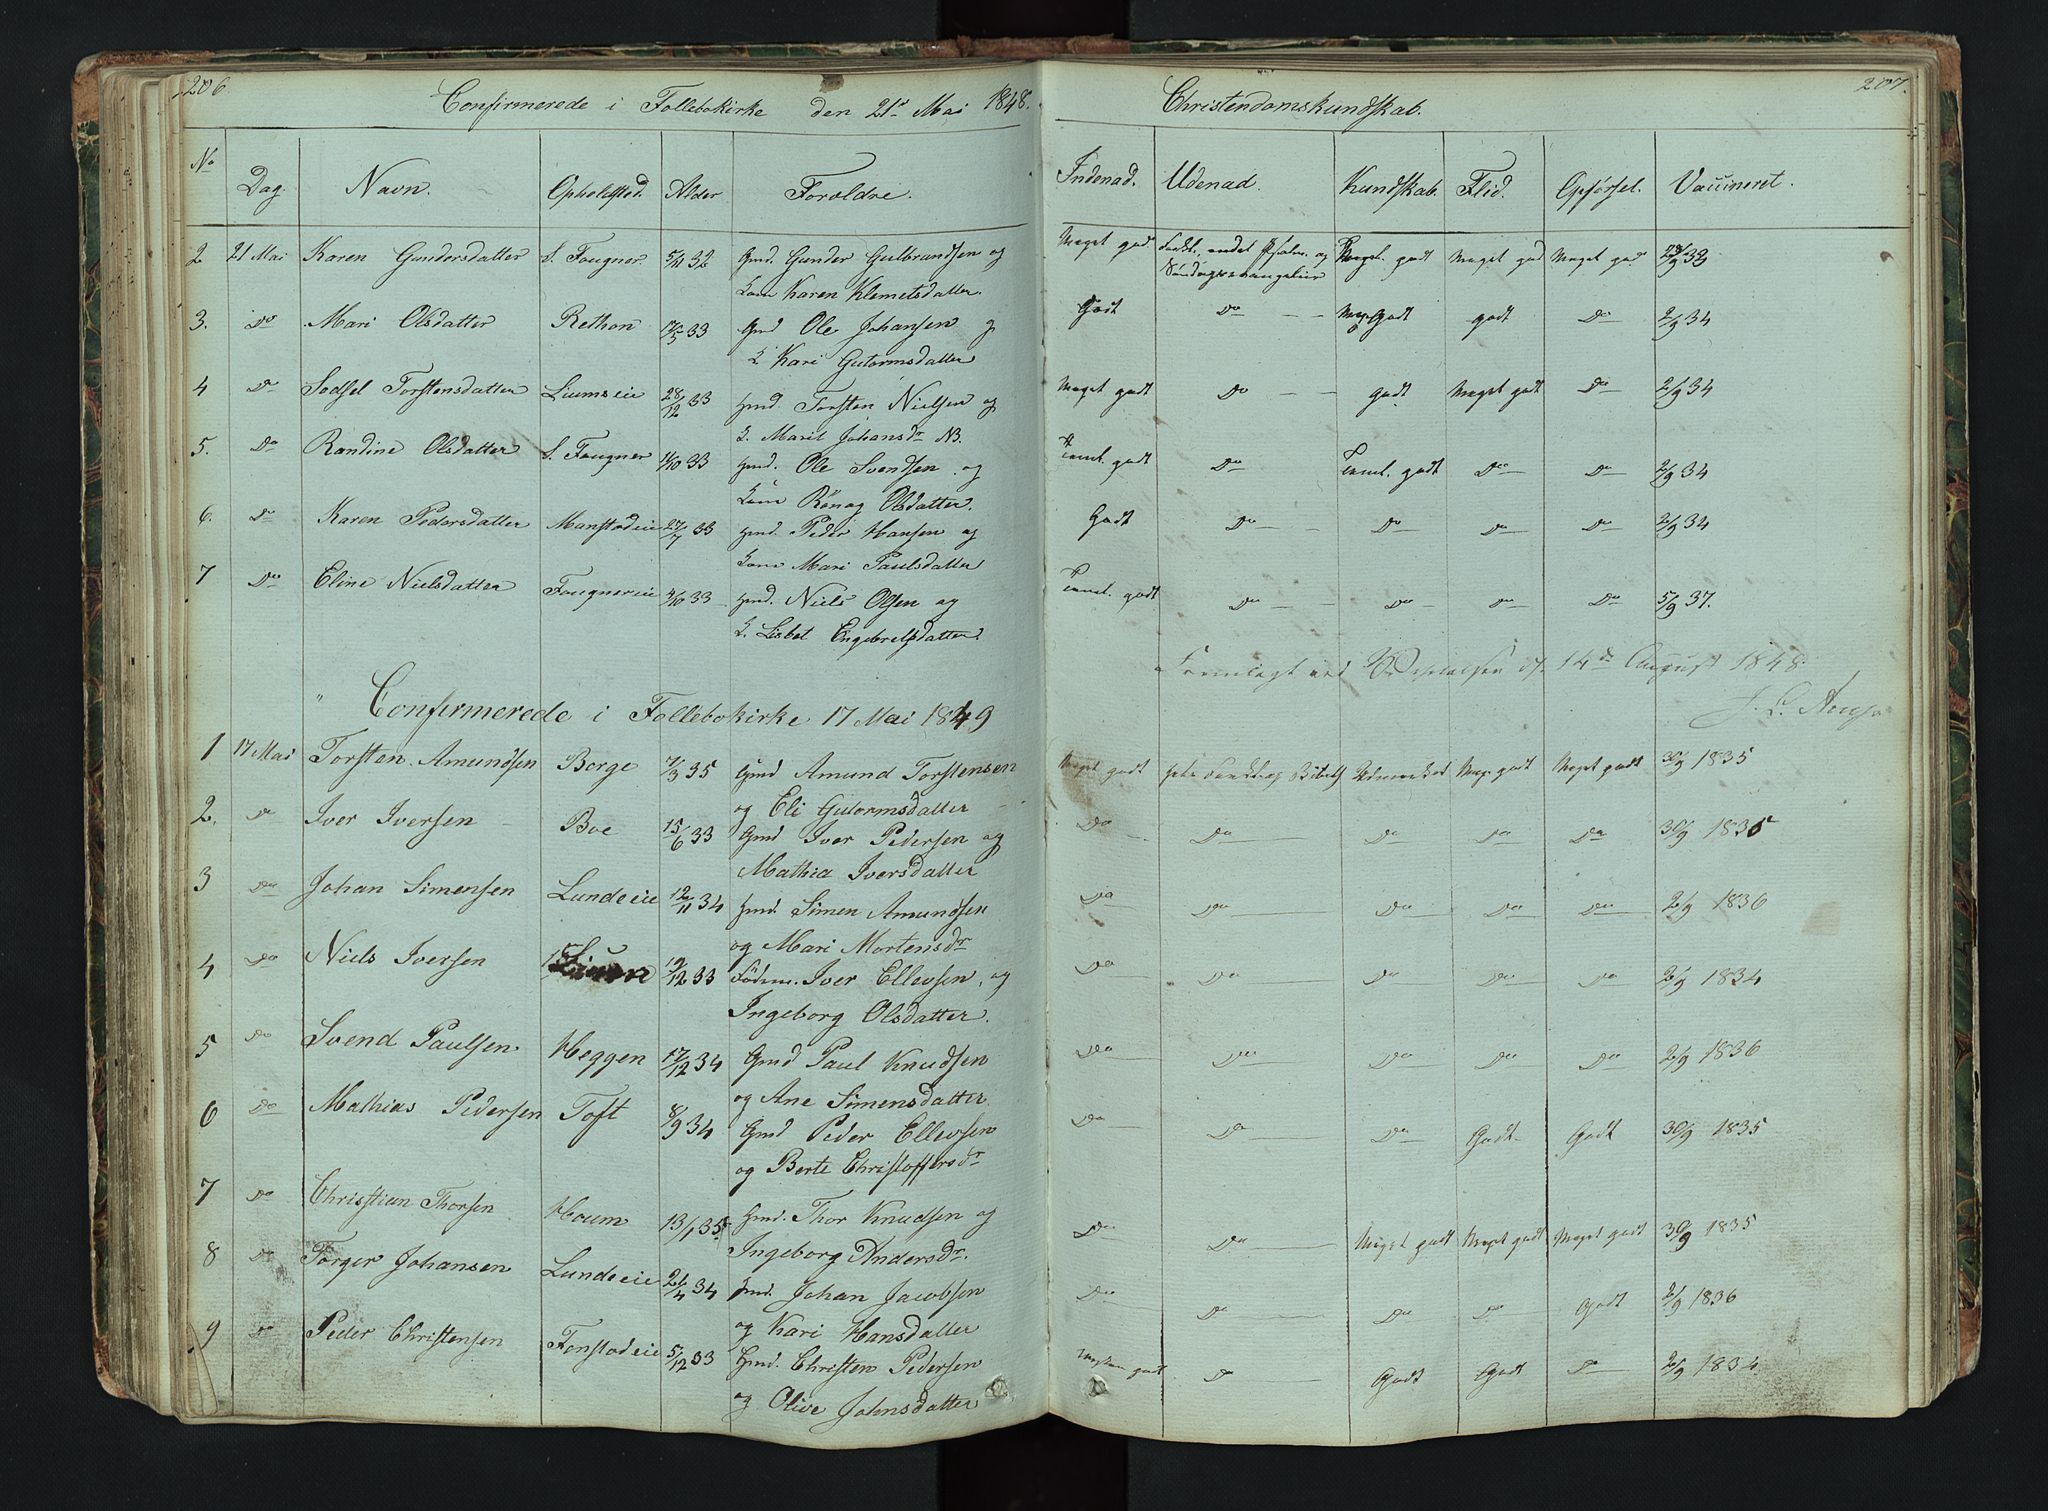 206
Confirmerede i Follebokirke den 21de Mai 1848.
No Dag. Navn. Opholdsted. Alder Foroldre.
2 21 Mai Karen Gundersdatter S. Fougner 5/11 32 Gmd. Gunder Gulbrandsen og
Kone Karen Klemetsdatter.
3. Do Mari Olsdatter Rethon 33 Gmd Ole Johansen og
K Kari Gutormsdatter
4 Do Sodsel Torstensdatter Liumseie 28/12 33 Hmd. Torsten Nielsen og
K. Marit Johansdr NB.
5. Do Randine Olsdatter S. Fougner 1/10 33 Hmd. Ole Svendsen og
Kone Rönog Olsdatter.
6. Do Karen Pedersdatter Manstadeie 27/7 33 Hmd. Peder Hansen og
Kone Mari Paulsdatter
7 Do Eline Nielsdatter Fougnereie 33 Hmd. Niels Olsen og
K. Lisbet Engebretsdatter.
Confirmerede i Follebokirke 17 Mai 1849
1 17 Mai Torsten Amundsen Borge 7/3 35 Gmd Amund Torstensen
og Eli Gutormsdatter
2. Do Iver Iversen Boe 15/6 33 Gmd Iver Pedersen og
Mathia Iversdatter
3 Do Johan Simensen Lundeeie 12/11 34 Hmd. Simen Amundsen
og Mari Mortensdr
4 Do Niels Iversen 33 Iver Ellevsen, og
Ingeborg Olsdatter.
5 Do Svend Paulsen Heggen 17/12 34 Gmd Paul Knudsen
og Ane Simensdatter
6 Do Mathias Pedersen Toft 8/9 34 Gmd Peder Ellevsen
og Berte Christoffersdr
7 Do Christian Thorsen Houm 13/1 35 Hmd. Thor Knudsen og
Ingeborg Andersdr.
8 Do Torger Johansen Lundeeie 2/4 34 Hmd. Johan Jacobsen
og Kari Hansdatter
9 Do Peder Christensen Fonstadeie 5/12 33 Hmd. Christen Pedersen
og Olive Johnsdatter
207.
Christendomskundskab.
Indenad. Udenad. Kundskab. Flid. Opførsel. Vaccineret.
Meget godt og godt Meget god Meget god
Søndagsevangelier
Godt Do godt godt Do 2/9 34
Meget godt Do godt Meget godt Do 2/9 34
Temel. godt Do Temel. godt Do Do 2/9 34
Godt Do Do Do Do 2/9 34
Temel. godt Do Do Do Do 5/9 37.
Fremlagt ved d. 14de August 1848.
Meget godt Udmerket Meget godt Meget godt 30/9 1835
Do Do Do Do Do 30/9 1835
Do Do Do Do Do 2/9 1836
Do Do Do Do Do 2/9 1834
Do Do Do Do Do 2/9 1836
Do Do Do Godt Godt 30/9 1835
Do Do Meget godt Meget godt Meget godt 30/9 1835
Do Do Do Do Godt 2/9 1836
godt Do Godt Godt Do 2/9 1834.